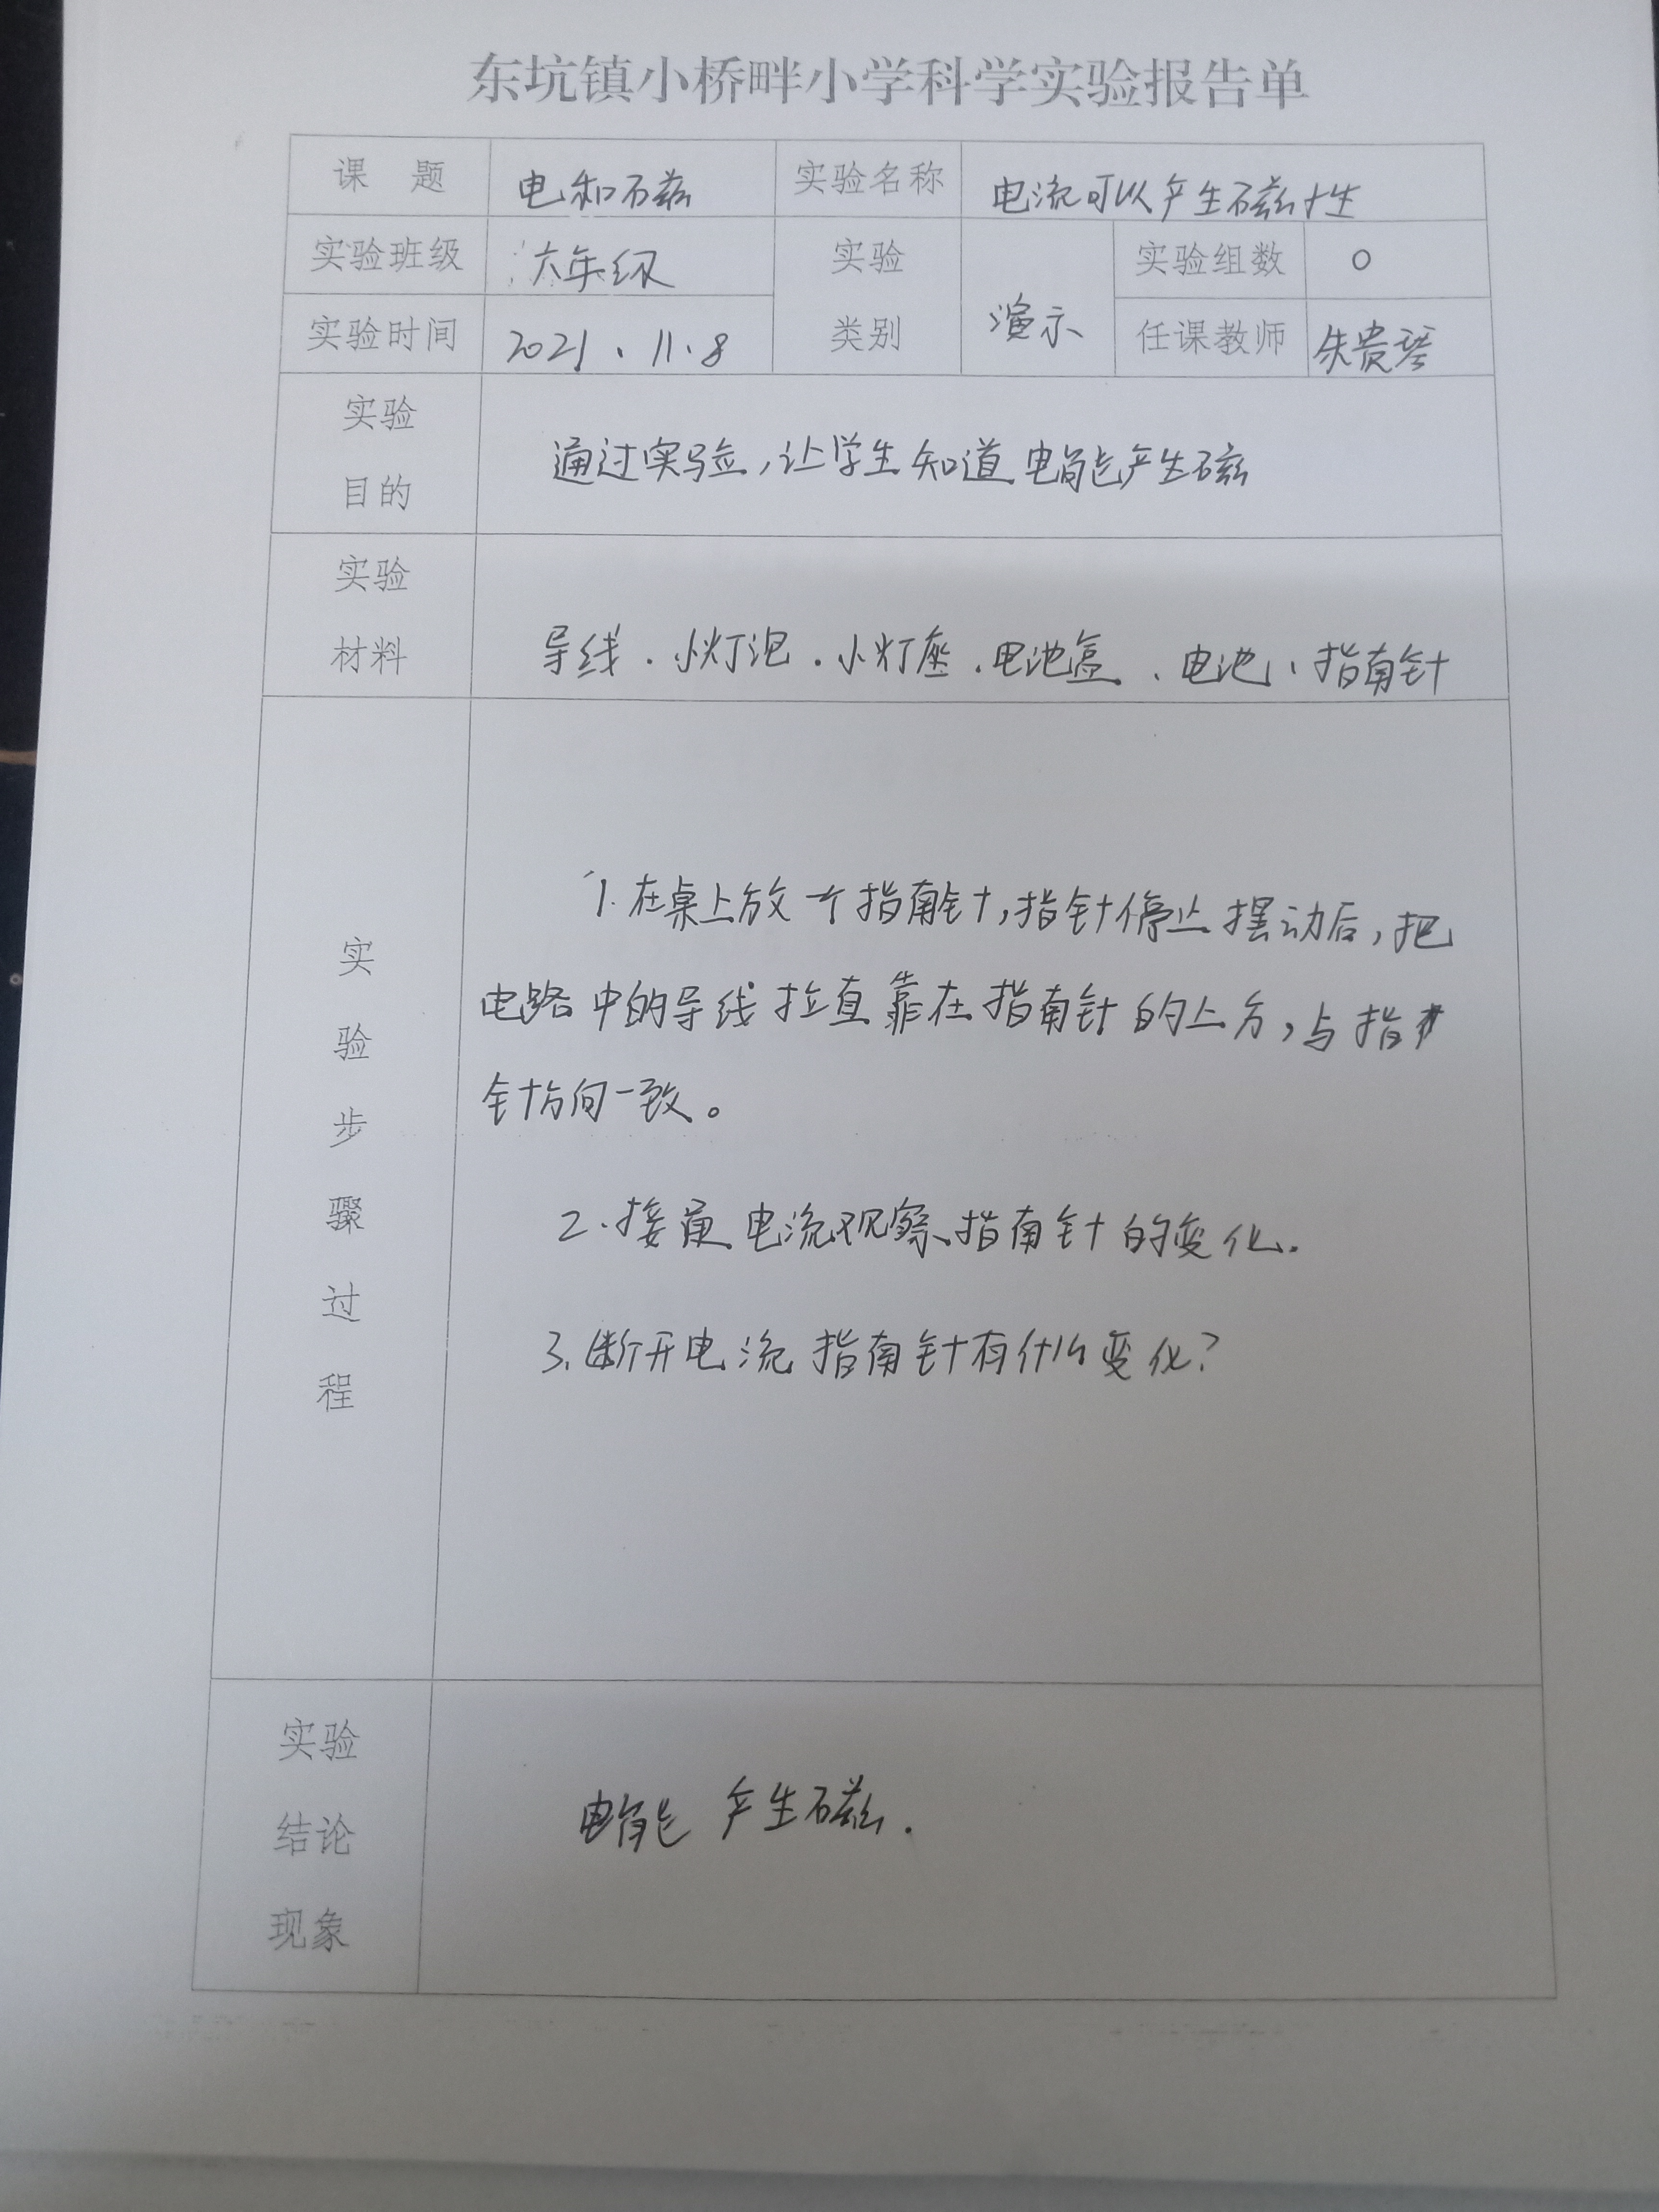 东坑镇小桥畔小学科学实验报告单
课 题 电和磁 实验名称 电流可以产生磁性
实验班级 六年级 实验 类别 演示 实验组数 0
实验时间 2021.11.8 任课教师 朱贵琴
实验
目的
通过实验,让学生知道电能产生磁
实验
材料
导线.小灯泡.小灯座.电池盒、电池、指南针
实验步骤过程
1.在桌上放一个指南针,指针停止摆动后,把
电路中的导线拉直靠在指南针的上方,与指
针方向一致。
2.接通电流观察指南针的变化.
3.断开电流指南针有什么变化?
实验
结论
现象
电能产生磁.